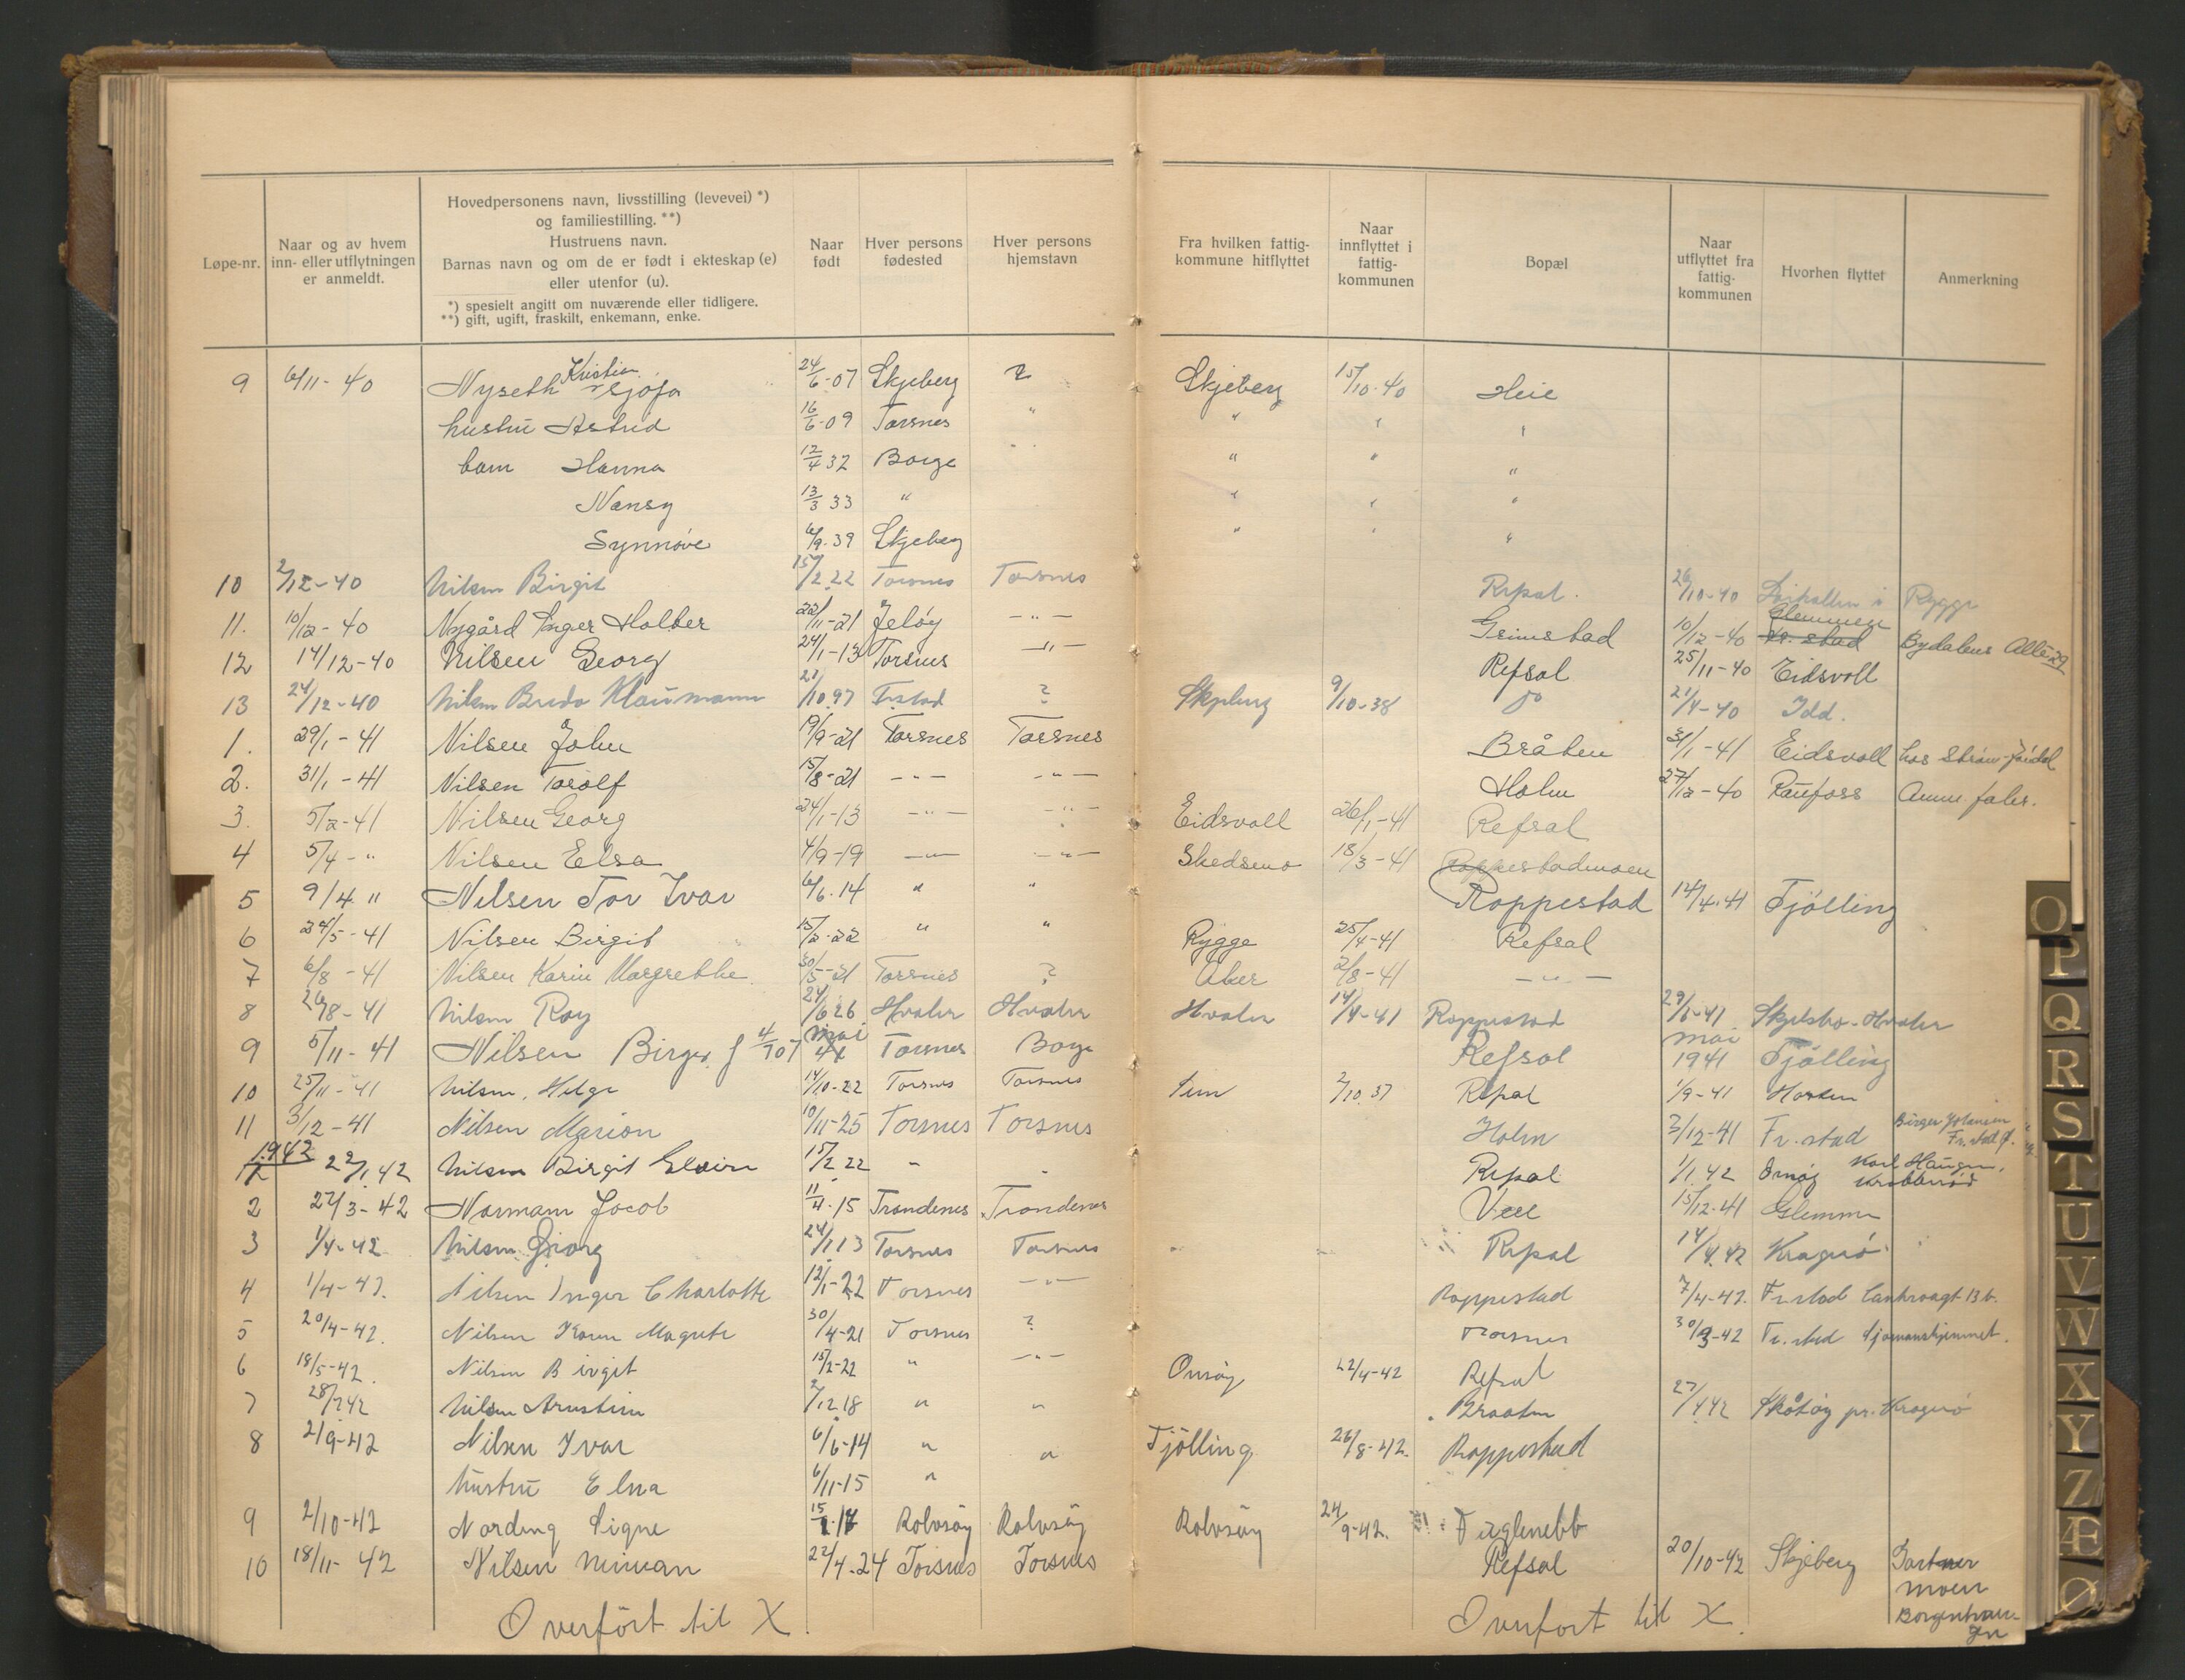 Løpe-nr.
Naar og av hvem inn- eller utflytningen er anmeldt.
Hovedpersonens navn, livsstilling (levevei) *) og familiestilling. **)
Hustruens navn.
Barnas navn og om de er født i ekteskap (e) eller utenfor (u).
*) spesielt angitt om nuværende eller tidligere.
**) gift, ugift, fraskilt, enkemann, enke.
Naar født
Hver persons fødested
Hver persons hjemstavn
Fra hvilken fattig-kommune hitflyttet
Naar innflyttet i fattig-kommunen
Bopæl
Naar utflyttet fra fattig-kommunen
Hvorhen flyttet
Anmerkning
Kristian
9 6/11-40 Nyseth 24/6-07 Skjeberg ? Skjeberg 15/10-40 Heie
hustru Astrid 16/6-09 Torsnes " " " "
barn Hanna 12/4 32 Borge " " "
Nansy 13/3 33 " " " "
Synnøve 6/9-39 Skjeberg " " "
10 2/12-40 Nilsen Birgit 15/2 22 Torsnes Torsnes Refsal. 26/10-40 Rygge
11. 10/12-40 Nygård Inger Holter 22/11-21 Jeløy -"- Grimstad 10/12-40 Fr. stad Glemmen Bydalens Allé 29
12 14/12-40 Nilsen Georg 24/1-13 Torsnes -"- Refsal 25/11-40 Eidsvoll
13 24/12-40 Nilsen 21/10 97 Fr.stad ? Skjeberg 9/10-38 Do 21/4-40 Idd.
1. 29/1-41 Nilsen John 19/9-21 Torsnes Torsnes Bråten 31/1-41 Eidsvoll hos
2. 31/1-41 Nilsen Torolf 15/8-21 -"- -"- Holm 27/12-40 Raufoss Amm. fabr.
3. 5/2-41 Nilsen Georg 24/1-13 -"- -"- Eidsvoll 26/1-41 Refsal
4 5/4-" Nilsen Elsa 4/9-19 -"- -"- Skedsmo 18/3-41 Roppestadmoen
5 9/4 " Nilsen Tor Ivar 6/6.14 " " Roppestad 14/4-41 Tjölling
6 24/5-41 Nilsen Birgit 15/2-22 " " Rygge 25/4-41 Refsal
7 6/8-41 Nilsen Karin Margrethe 30/5-21 Torsnes ? Aker 2/8-41 -"-
8 26/8-41 Nilsen Roy 24/6 26 Hvaler Hvaler Hvaler 14/4-41 Roppestad 29/6-41 Skjelsbo-Hvaler
9 5/11-41 Nilsen Birger f 4/7 07 mai 41 Torsnes Borge Refsal mai 1941 Tjölling
10 25/11-41 Nilsen, Helge 14/10-22 Torsnes Torsnes Sem 2/10 37 Refsal 1/9-41 Horten
11 3/12-41 Nilsen Marion 10/11-25 Torsnes Torsnes Holm 3/12-41 Fr.stad Birger Johansen Fr.stad
1942
22/1 42 Nilsen Birgit 15/2 22 " " Refsal 1/1 42 Onsøy Karl Haugen,
2 27/3-42 Normann Jacob 11/4-15 Trondenes Trondenes Veel 15/12-41 Glemmen
3 1/4-42 Nilsen Georg 24/1 13 Torsnes Torsnes Refsal 14/4.42 Kragerø
4 1/4-42. Nilsen Inger Charlotte 12/1-22 Torsnes -"- Roppestad 7/4-42. Fr.stad 13 b.
5 20/4-42. Nilsen Karen Magrete 30/4-21 Torsnes ? Torsnes 30/3-42 Fr.stad Sjømannshjemmet.
6 18/5-42. Nilsen Birgit 15/2-22 " -"- Onsøy 22/4-42 Refsal
7 28/7 42 Nilsen 2/12 18 " " Braaten 27/4 42 Skåtøy pr. Kragerø
8 2/9-42 Nilsen Ivar 6/6-14 " " Tjölling 26/8-42. Roppestad
hustru Elna 6/11-15 "
9 2/10-42 Nording Signe Rolvsøy Rolvsøy Rolvsøy 24/9-42. Fuglenebb
10 18/11-42 Nilsen Miriam 22/4.24 Torsnes Torsnes Refsal 20/10-42 Skjeberg Gartner Moen
Overført til X Overført til X.
O
P
Q
R
S
T
U
V
W
X
Y
Z
Æ
Ø